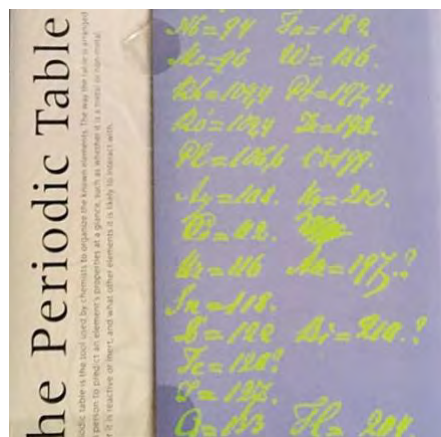 he Periodic Table
odic table is the tool used by chemists to organize the known elements. The way the table is arranged
person to predict an element's properties at a glance, such as whether it is a metal or non-metal,
r it is reactive or inert, and what other elements it is likely to interact with.
Nb=94 Ta=182
Mo=96 W=186.
Rh=104,4 Pt=197,4.
Ru=104,4 Ir=198.
Pl=106,6 Os=199.
Ag=108. Hg=200.
=112.
Ur=116 Au=197.?
Sn=118.
=122 Bi=210.?
Te=128?
J=127.
=133 Tl=204.